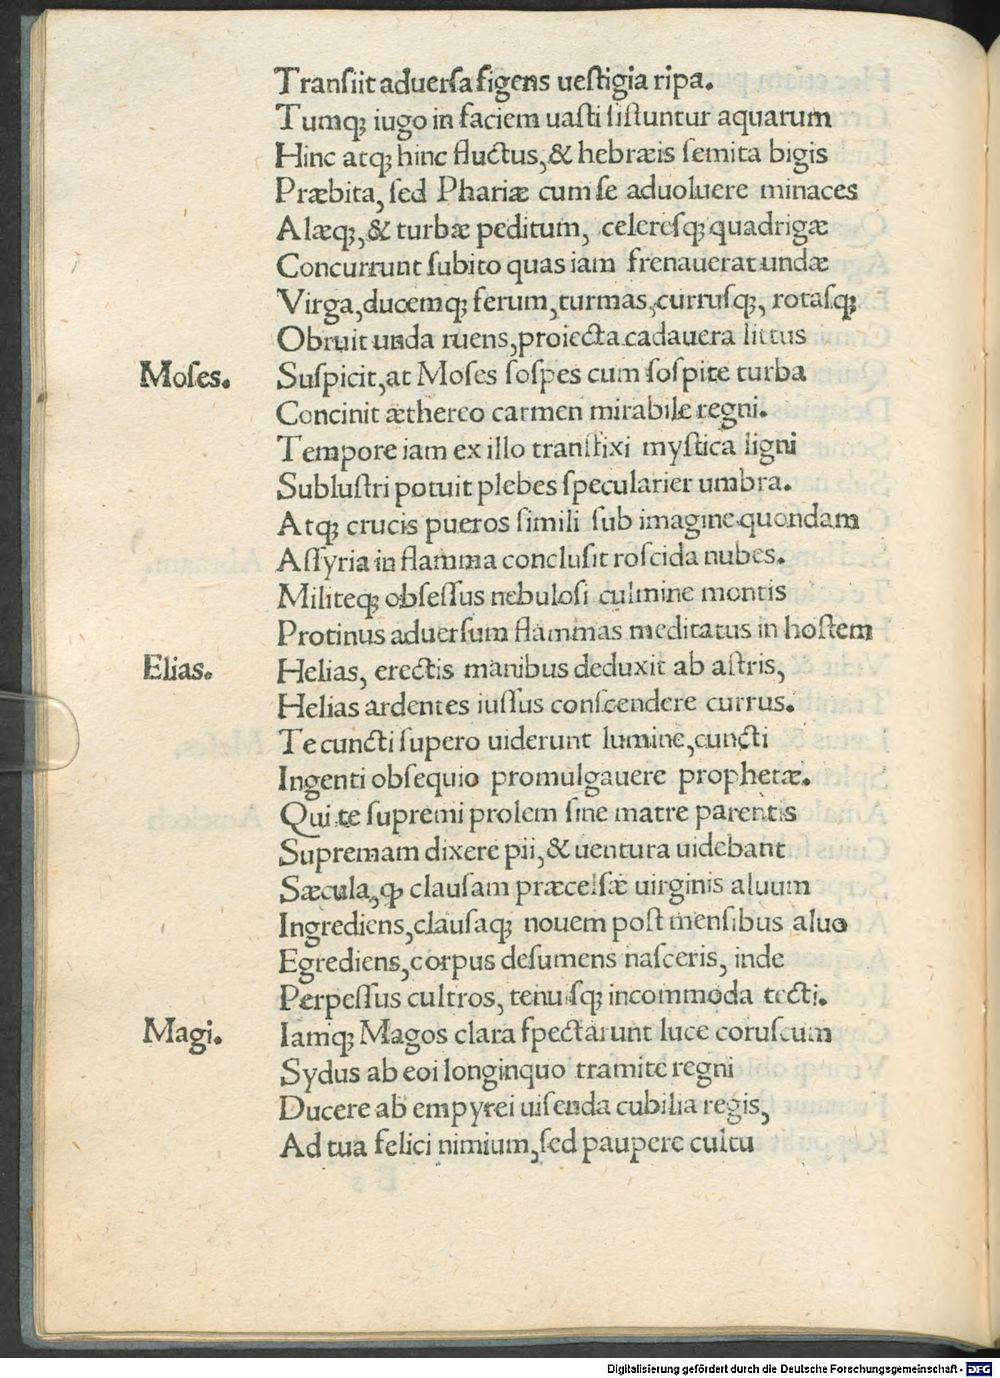 Tranſiit aduerſa figens ueſtigia ripa.
Tumqꝫ iugo in faciem uaſti ſiſtuntur aquarum
Hinc atqꝫ hinc fluctus, & hebræis ſemita bigis
Præbita, ſed Phariæ cum ſe aduoluere minaces
Alæqꝫ, & turbæ peditum, celereſqꝫ quadrigæ
Concurrunt ſubito quas iam frenauerat undæ
Virga, ducemqꝫ ferum, turmas, curruſqꝫ, rotaſqꝫ
Obruit unda ruens, proiecta cadauera littus
Moſes. Suſpicit, at Moſes ſoſpes cum ſoſpite turba
Concinit æthereo carmen mirabile regni.
Tempore iam ex illo tranſfixi myſtica ligni
Subluſtri potuit plebes ſpecularier umbra.
Atqꝫ crucis pueros ſimili ſub imagine quondam
Aſſyria in flamma concluſit roſcida nubes.
Militeqꝫ obſeſſus nebuloſi culmine montis
Protinus aduerſum flammas meditatus in hoſtem
Elias. Helias, erectis manibus deduxit ab aſtris,
Helias ardentes iuſſus conſcendere currus.
Te cuncti ſupero uiderunt lumine, cuncti
Ingenti obſequio promulgauere prophetæ.
Qui te ſupremi prolem ſine matre parentis
Supremam dixere pii, & uentura uidebant
Sæcula, ꝙ clauſam præcelſæ uirginis aluum
Ingrediens, clauſaqꝫ nouem poſt menſibus aluo
Egrediens, corpus deſumens naſceris, inde
Perpeſſus cultros, tenuiſqꝫ incommoda tecti.
Magi. Iamqꝫ Magos clara ſpectarunt luce coruſcum
Sydus ab eoi longinquo tramite regni
Ducere ab empyrei uiſenda cubilia regis,
Ad tua felici nimium, ſed paupere cultu
Digitalisierung gefördert durch die Deutsche Forschungsgemeinschaft - DFG